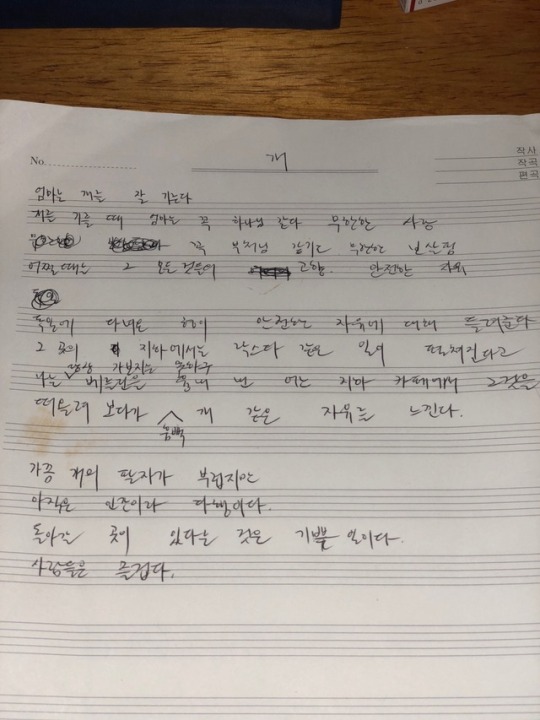 개
No.
작사
작곡
편곡
엄마는 개를 잘 기른다
저를 기를 때 엄마는 꼭 하나님 같다 무한한 사랑
꼭 부처님 같기도 무한한 보살핌
어쩔 때는 그 모든 것들이 고향. 안전한 자유
독일에 다녀온 형이 안전한는 자유에 대해 들려준다
그 곳의 지하에서는 락스타 같은 일이 펼쳐진다고
항상 가보지는 못하구
나는 베를린을 흉내 낸 어느 지하 카페에서 그것을
떠올려 보다가 개 같은 자유를 느낀다.
듬뿍
가끔 개의 팔자가 부럽지만
아직은 인간이라 다행이다.
돌아갈 곳이 있다는 것은 기쁠 일이다.
사람들은 즐겁다.